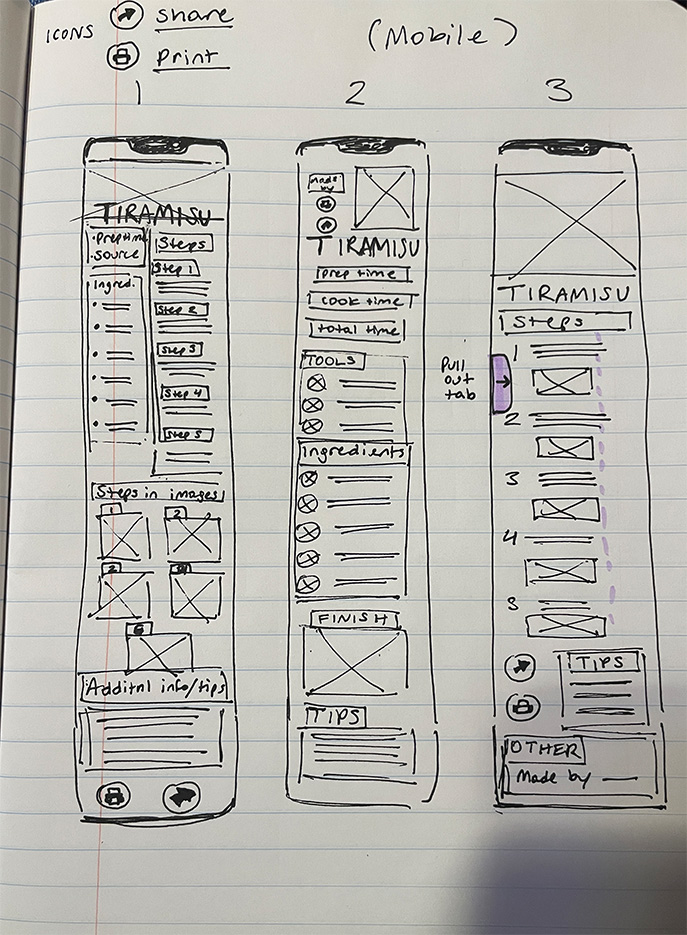 ICONS
share
print
(Mobile)
1
2
3
TIRAMISU
• Prep time
• Source
Ingred.
Steps
Step 1
Step 2
Step 3
Step 4
Step 5
Steps in images
1
2
Additnl info/tips
made by
TIRAMISU
prep time
cook time
total time
TOOLS
Ingredients
FINISH
TIPS
Pull
out
tab
TIRAMISU
Steps
1
2
3
4
5
TIPS
OTHER
Made by